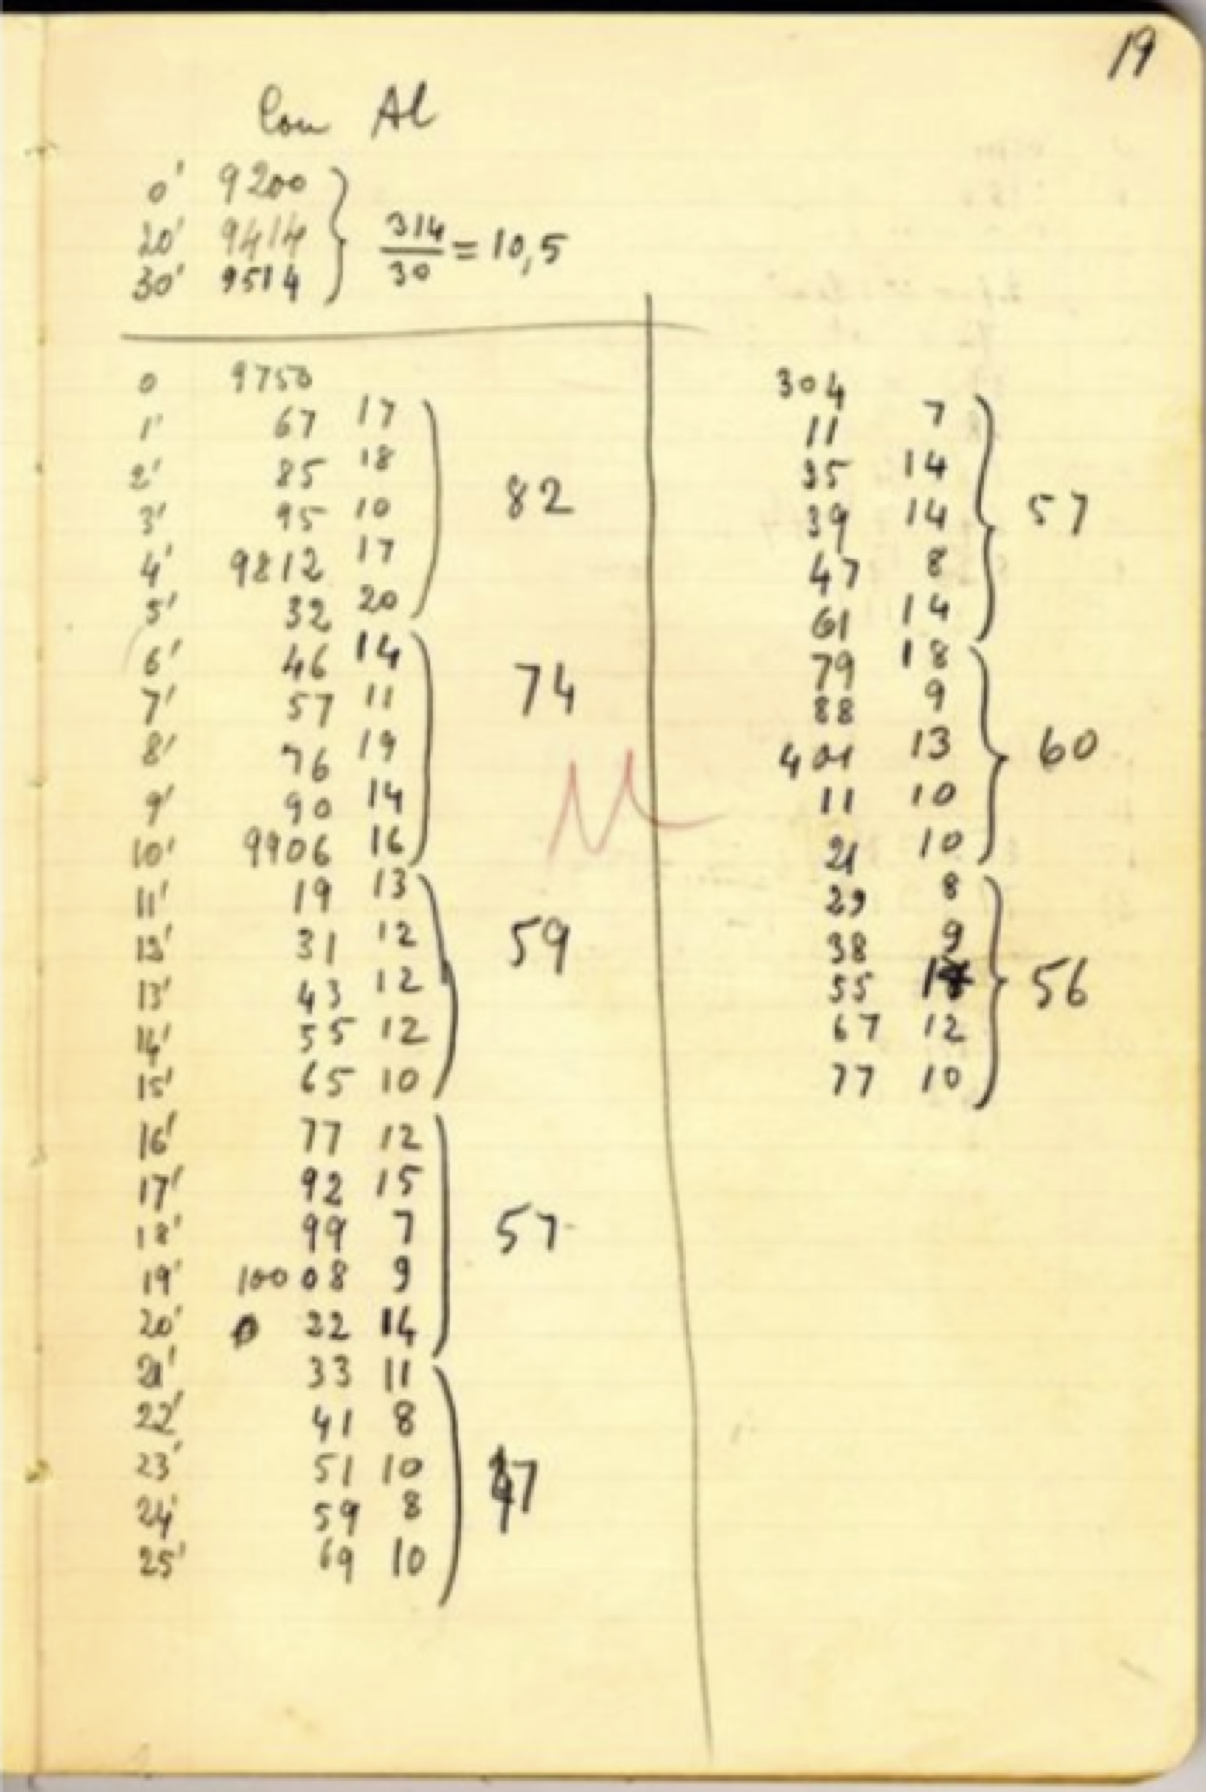 19
Con Al
0' 9200
20' 9414
30' 9514
314/30 = 10,5
0 9750
1' 67 17
2' 85 18
3' 95 10
82
4' 9812 17
5' 32 20
6' 46 14
7' 57 11
74
8' 76 19
9' 90 14
10' 9906 16
11' 19 13
13' 31 12
59
13' 43 12
14' 55 12
15' 65 10
16' 77 12
17' 92 15
18' 99 7
57
19' 10008 9
20' 22 14
21' 33 11
22' 41 8
23' 51 10
47
24' 59 8
25' 69 10
304
11 7
35 14
39 14
57
47 8
61 14
79 18
88 9
401 13
60
11 10
21 10
29 8
38 9
55
56
67 12
77 10